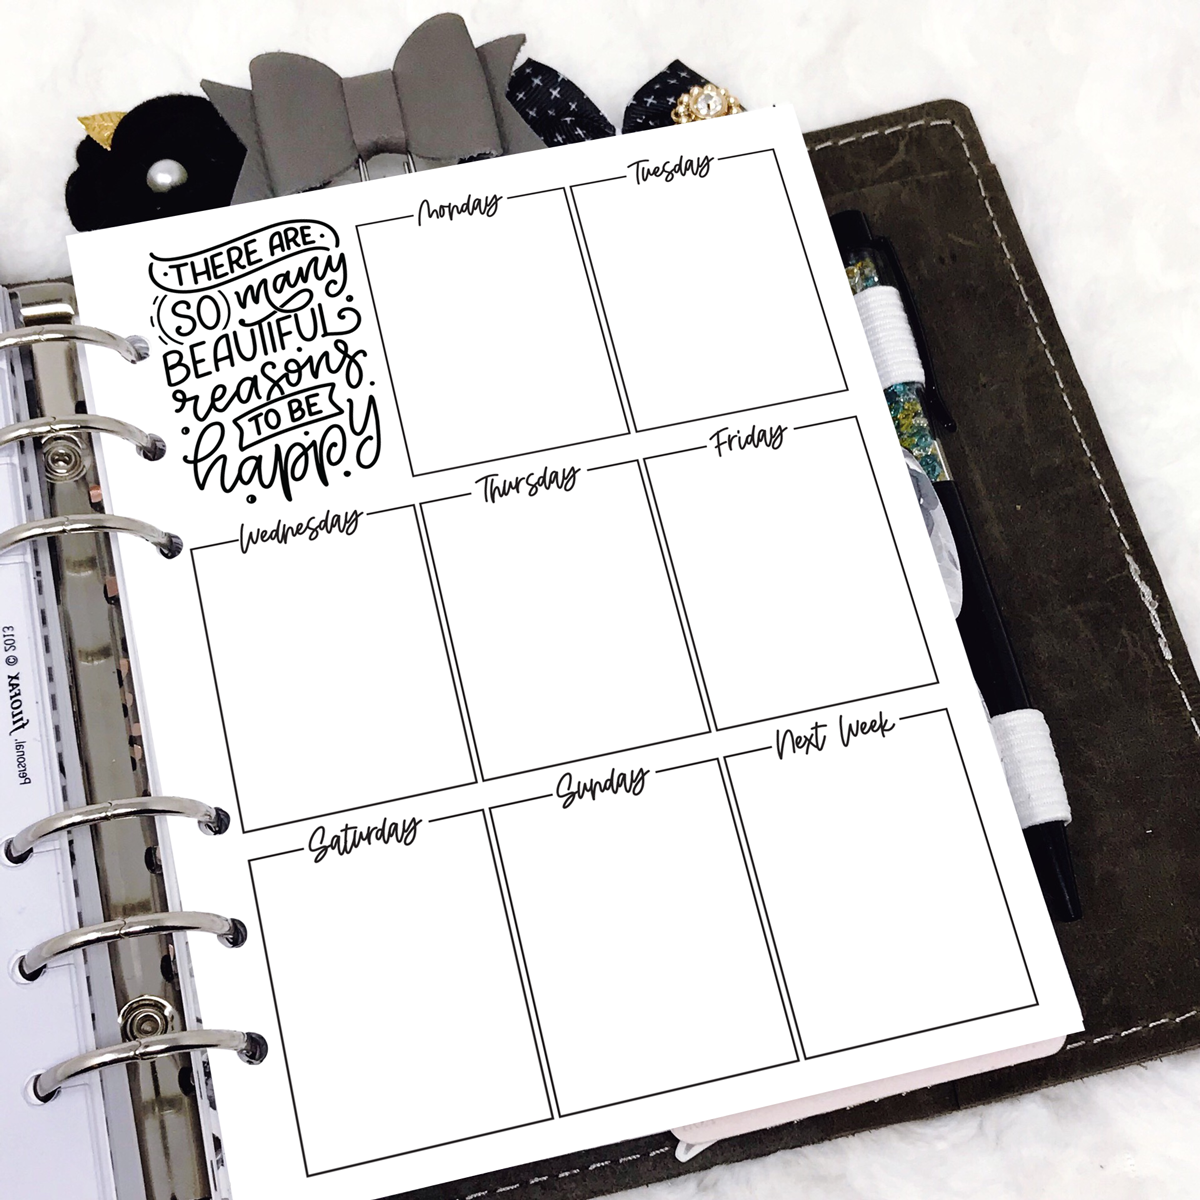 · THERE ARE ·
(SO) many
BEAUTIFUL
reasons
TO BE
happy
Monday
Tuesday
Wednesday
Thursday
Friday
Saturday
Sunday
Next Week
Personal, FILOFAX © 2013